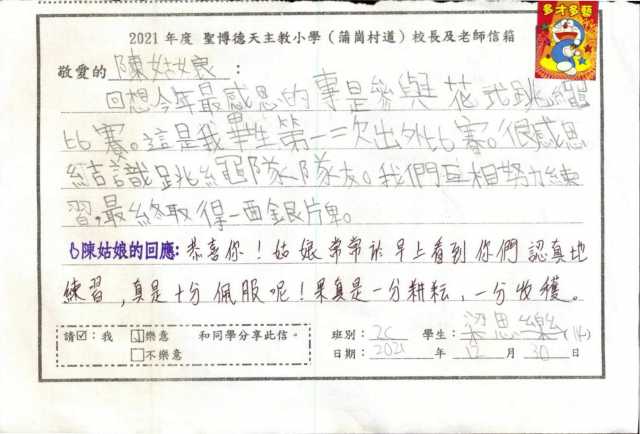 多才多藝
2021 年度 聖博德天主教小學（蒲崗村道）校長及老師信箱
敬愛的 陳姑娘：
回想今年最感恩的事是參與花式跳繩
比賽。這是我畢生第一次出外比賽。很感恩
結識跳繩隊隊友。我們互相努力練
習，最終取得一面銀牌。
陳姑娘的回應：恭喜你！姑娘常常於早上看到你們認真地
練習，真是十分佩服呢！果真是一分耕耘，一分收穫。
請☑：我 ☑樂意 和同學分享此信。 班別：2C 學生：梁思樂（14）
□不樂意 日期：2021 年 12 月 30 日